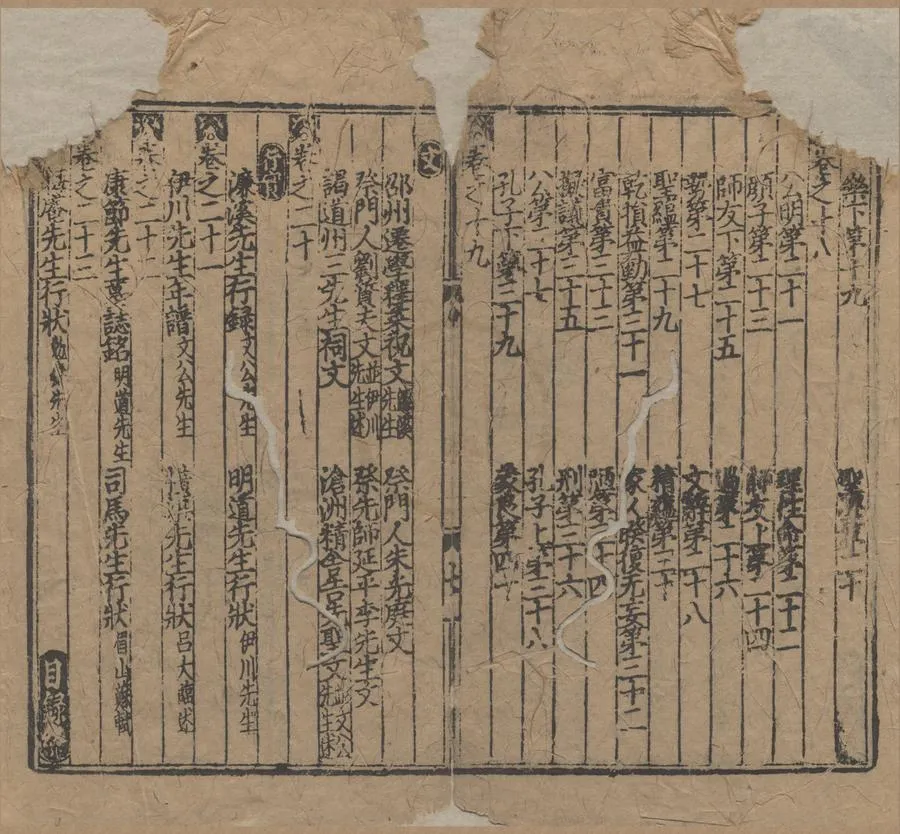 樂下第十九　聖學第二十
卷之十八
公明第二十一　理性命第二十二
顔子第二十三　師友上第二十四
師友下第二十五　過第二十六
勢第二十七　文辭第二十八
聖蘊第二十九　精蘊第三十
乾損益動第三十一　家人睽復无妄第三十二
富貴第三十三　陋第三十四
擬議第三十五　刑第三十六
公第三十七　孔子上第三十八
孔子下第三十九　蒙艮第四十
卷之十九
文
七
邵州遷學釋菜祝文濂溪先生　祭門人朱光庭文
祭門人劉質夫文並伊川先生述　祭先師延平李先生文
謁道州三先生祠文　滄洲精舍告先聖文並文公先生述
卷之二十
行實
濂溪先生行録文公先生　明道先生行狀伊川先生
卷之二十一
伊川先生年譜文公先生　橫渠先生行狀吕大臨述
卷之二十二
康節先生墓誌銘明道先生　司馬先生行狀眉山蘇軾
卷之二十三
晦庵先生行狀勉齋先生
目録